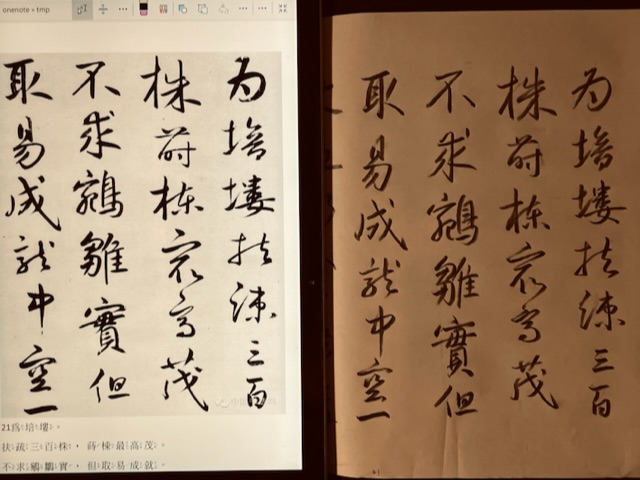 onenote » tmp
为培塿扶疎三百
株蒔棟㝡高茂
不求鵷雛實但
取易成就中空一
21爲培塿。
扶疏三百株，蒔棟最高茂。
不求鵷鶵實，但取易成就。
为培塿扶疎三百
株蒔棟㝡高茂
不求鵷雛實但
取易成就中空一